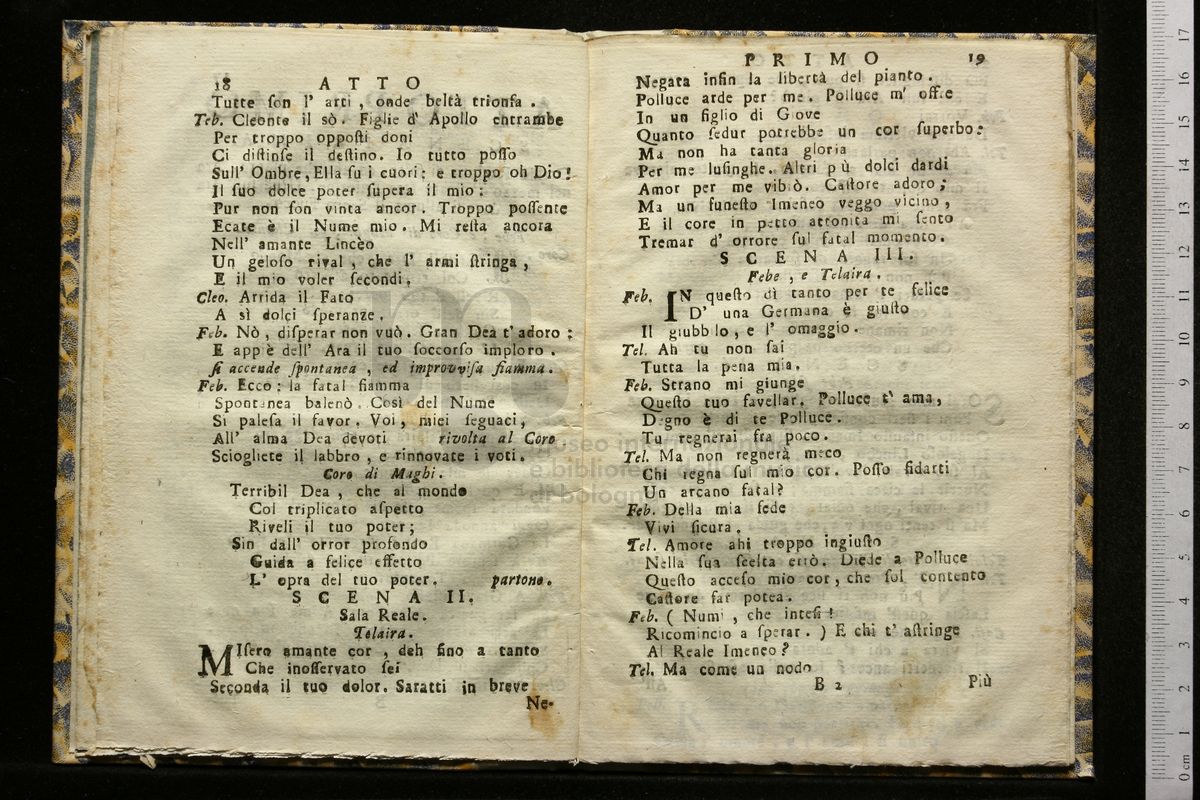 18 ATTO
Tutte ſon l' arti, onde beltà trionfa.
Teb. Cleonte il sò. Figlie d' Apollo entrambe
Per troppo oppoſti doni
Ci diſtinſe il deſtino. Io tutto pòſſo
Sull' Ombre, Ella ſu i cuori: e troppo oh Dio!
Il ſuo dolce poter ſupera il mio:
Pur non ſon vinta ancor. Troppo poſſente
Ecate è il Nume mio. Mi reſta ancora
Nell' amante Lincèo
Un geloſo rival, che l' armi ſtringa,
E il mio voler ſecondi.
Cleo. Arrida il Fato
A sì dolci ſperanze.
Feb. Nò, diſperar non vuò. Gran Dea t' adoro:
E appè dell' Ara il tuo ſoccorſo imploro.
ſi accende ſpontanea, ed improvviſa fiamma.
Feb. Ecco: la fatal fiamma
Spontanea balenò. Così del Nume
Si paleſa il favor. Voi, miei ſeguaci,
All' alma Dea devoti rivolta al Coro
Sciogliete il labbro, e rinnovate i voti.
Coro di Maghi.
Terribil Dea, che al mondo
Col triplicato aſpetto
Riveli il tuo poter;
Sin dall' orror profondo
Guida a felice effetto
L' opra del tuo poter. partono.
SCENA II.
Sala Reale.
Telaira.
MIſero amante cor, deh fino a tanto
Che inoſſervato ſei
Seconda il tuo dolor. Saratti in breve
Ne-
PRIMO 19
Negata infin la libertà del pianto.
Polluce arde per me. Polluce m' offre
In un figlio di Giove
Quanto ſedur potrebbe un cor ſuperbo:
Ma non ha tanta gloria
Per me luſinghe. Altri più dolci dardi
Amor per me vibrò. Caſtore adoro;
Ma un funeſto Imeneo veggo vicino,
E il core in petto attonita mi ſento
Tremar d' orrore ſul fatal momento.
SCENA III.
Febe, e Telaira.
Feb. IN queſto dì tanto per te felice
D' una Germana è giuſto
Il giubbilo, e l' omaggio.
Tel. Ah tu non ſai
Tutta la pena mia.
Feb. Strano mi giunge
Queſto tuo favellar. Polluce t' ama,
Degno è di te Polluce.
Tu regnerai fra poco.
Tel. Ma non regnerà meco
Chi regna ſul mio cor. Poſſo fidarti
Un arcano fatal?
Feb. Della mia fede
Vivi ſicura.
Tel. Amore ahi troppo ingiuſto
Nella ſua ſcelta errò. Diede a Polluce
Queſto acceſo mio cor, che ſol contento
Caſtore far potea.
Feb. (Numi, che inteſi!
Ricomincio a ſperar.) E chi t' aſtringe
Al Reale Imeneo?
Tel. Ma come un nodo
B 2 Più
museo internazionale
e biblioteca della musica
di bologna